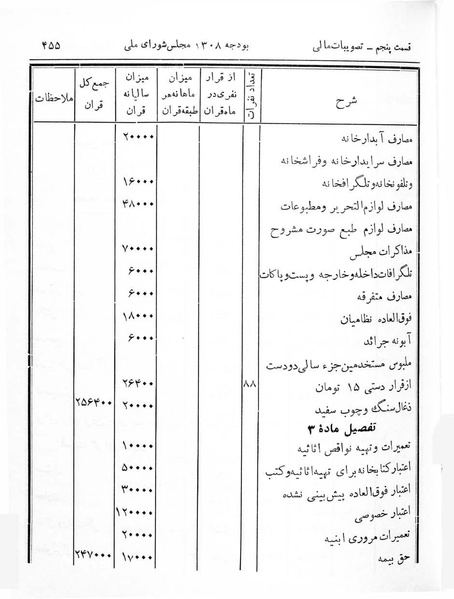 قسمت پنجم ــ تصویبات مالی بودجه ۱۳۰۸ مجلس شورای ملی ۴۵۵
شرح تعداد نفرات از قرار نفری در ماه قران میزان ماهانه هر طبقه قران میزان سالیانه قران جمع کل قران ملاحظات
مصارف آبدارخانه ۲۰۰۰۰
مصارف سرایدارخانه و فراشخانه
و تلفونخانه و تلگرافخانه ۱۶۰۰۰
مصارف لوازم التحریر و مطبوعات ۴۸۰۰۰
مصارف لوازم طبع صورت مشروح
مذاکرات مجلس ۷۰۰۰۰
تلگرافات داخله و خارجه و پست و پاکات ۶۰۰۰
مصارف متفرقه ۶۰۰۰۰
فوق‌العاده نظامیان ۱۸۰۰۰
آبونه جرائد ۶۰۰۰
ملبوس مستخدمین جزء سالی دو دست
از قرار دستی ۱۵ تومان ۸۸ ۲۶۴۰۰
ذغال سنگ و چوب سفید ۲۰۰۰۰ ۲۵۶۴۰۰
تفصیل مادهٔ ۳
تعمیرات و تهیه نواقص اثاثیه ۱۰۰۰۰
اعتبار کتابخانه برای تهیه اثاثیه و کتب ۵۰۰۰۰
اعتبار فوق‌العاده پیش بینی نشده ۳۰۰۰۰
اعتبار خصوصی ۱۲۰۰۰۰
تعمیرات مروری ابنیه ۲۰۰۰۰
حق بیمه ۱۷۰۰۰ ۲۴۷۰۰۰